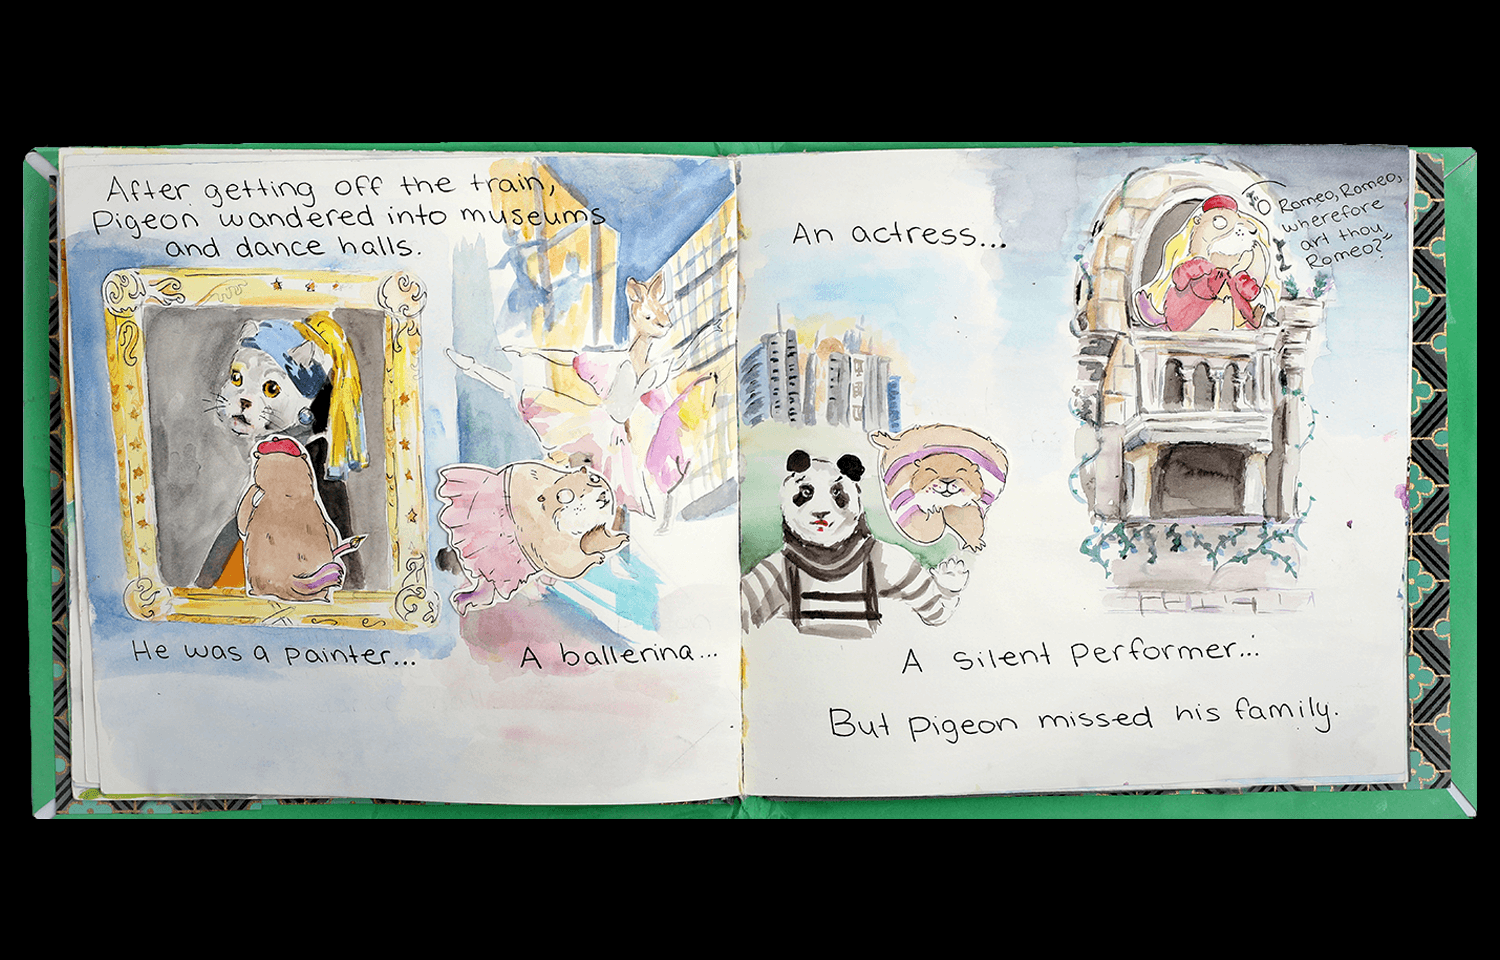 After getting off the train,
Pigeon wandered into museums
and dance halls.
He was a painter...
A ballerina...
An actress...
"O Romeo, Romeo,
wherefore
art thou
Romeo?"
A silent performer...
But pigeon missed his family.